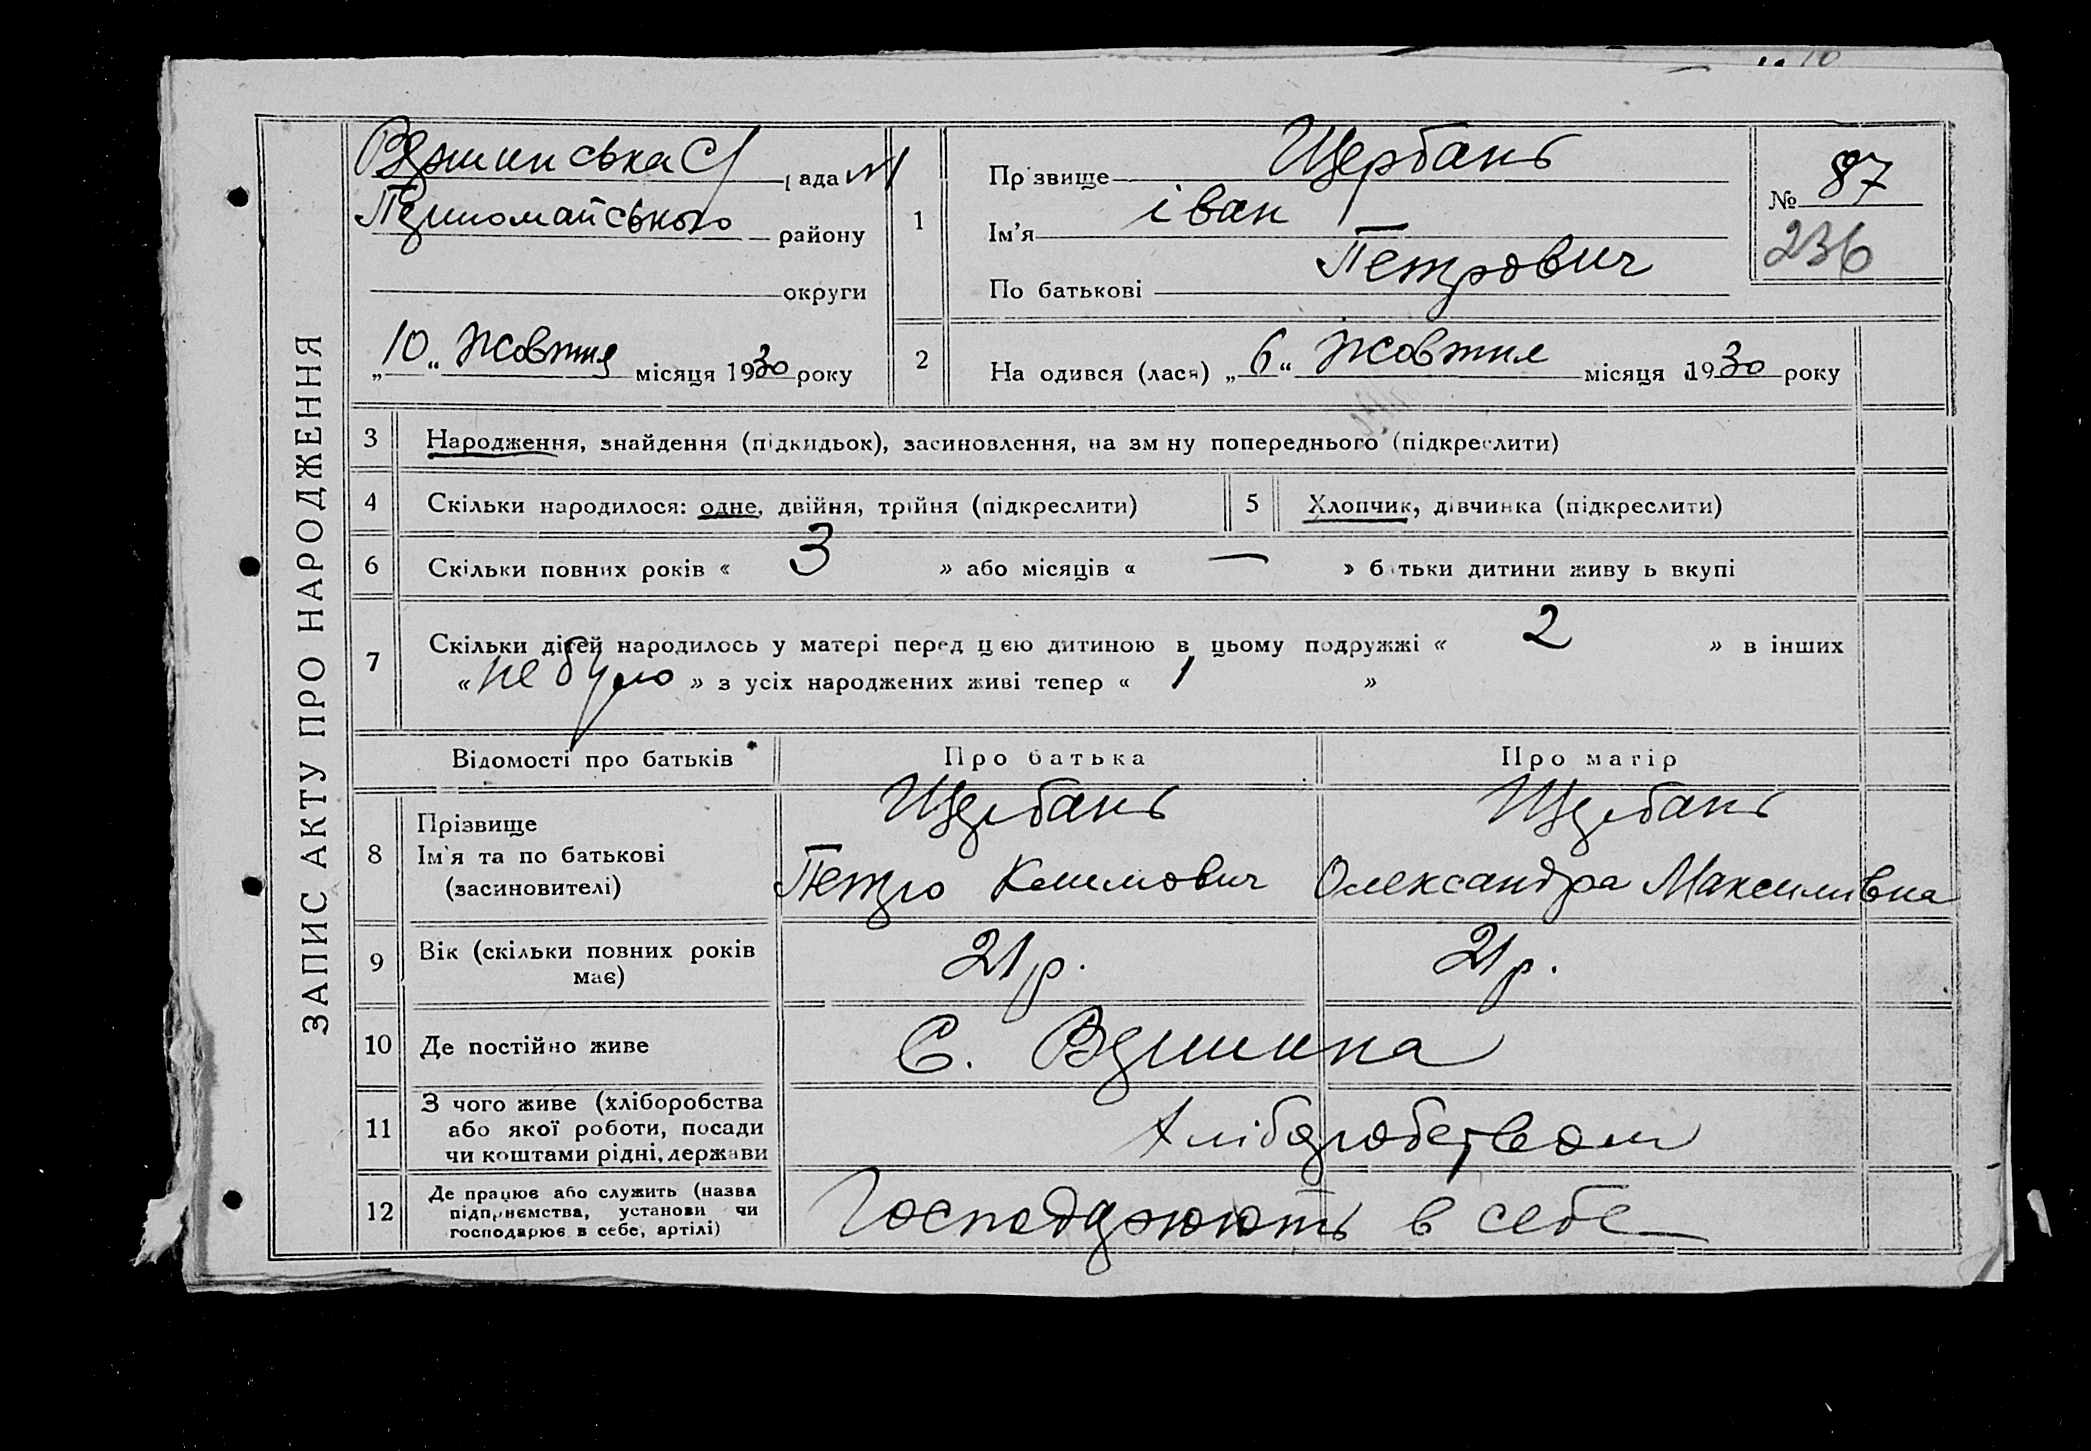 ЗАПИС АКТУ ПРО НАРОДЖЕННЯ
рада
Первомайського району
округи
„10“ Жовтня місяця 1930 року
1
Прізвище Щербань
Ім'я іван
По батькові Петрович
№ 87
236
2
На одився (лася) „6“ Жовтня місяця 1930 року
3 Народження, знайдення (підкидьок), засиновлення, на зм ну попереднього (підкреслити)
4 Скільки народилося: одне, двійня, трійня (підкреслити)
5 Хлопчик, дівчинка (підкреслити)
6 Скільки повних років « 3 » або місяців « — » батьки дитини живу ь вкупі
7 Скільки дітей народилось у матері перед цією дитиною в цьому подружжі « 2 » в інших
« не було » з усіх народжених живі тепер « 1 »
Відомості про батьків
Про батька
Про матір
8 Прізвище
Ім'я та по батькові
(засиновителі)
Щербань
Петро Климович
Щербань
Олександра Максимівна
9 Вік (скільки повних років
має)
21 р.
21 р.
10 Де постійно живе
С.
11 З чого живе (хліборобства
або якої роботи, посади
чи коштами рідні, держави
Хліборобством
12 Де працює або служить (назва
підприємства, установи чи
господарює в себе, артілі)
Господарюють в себе